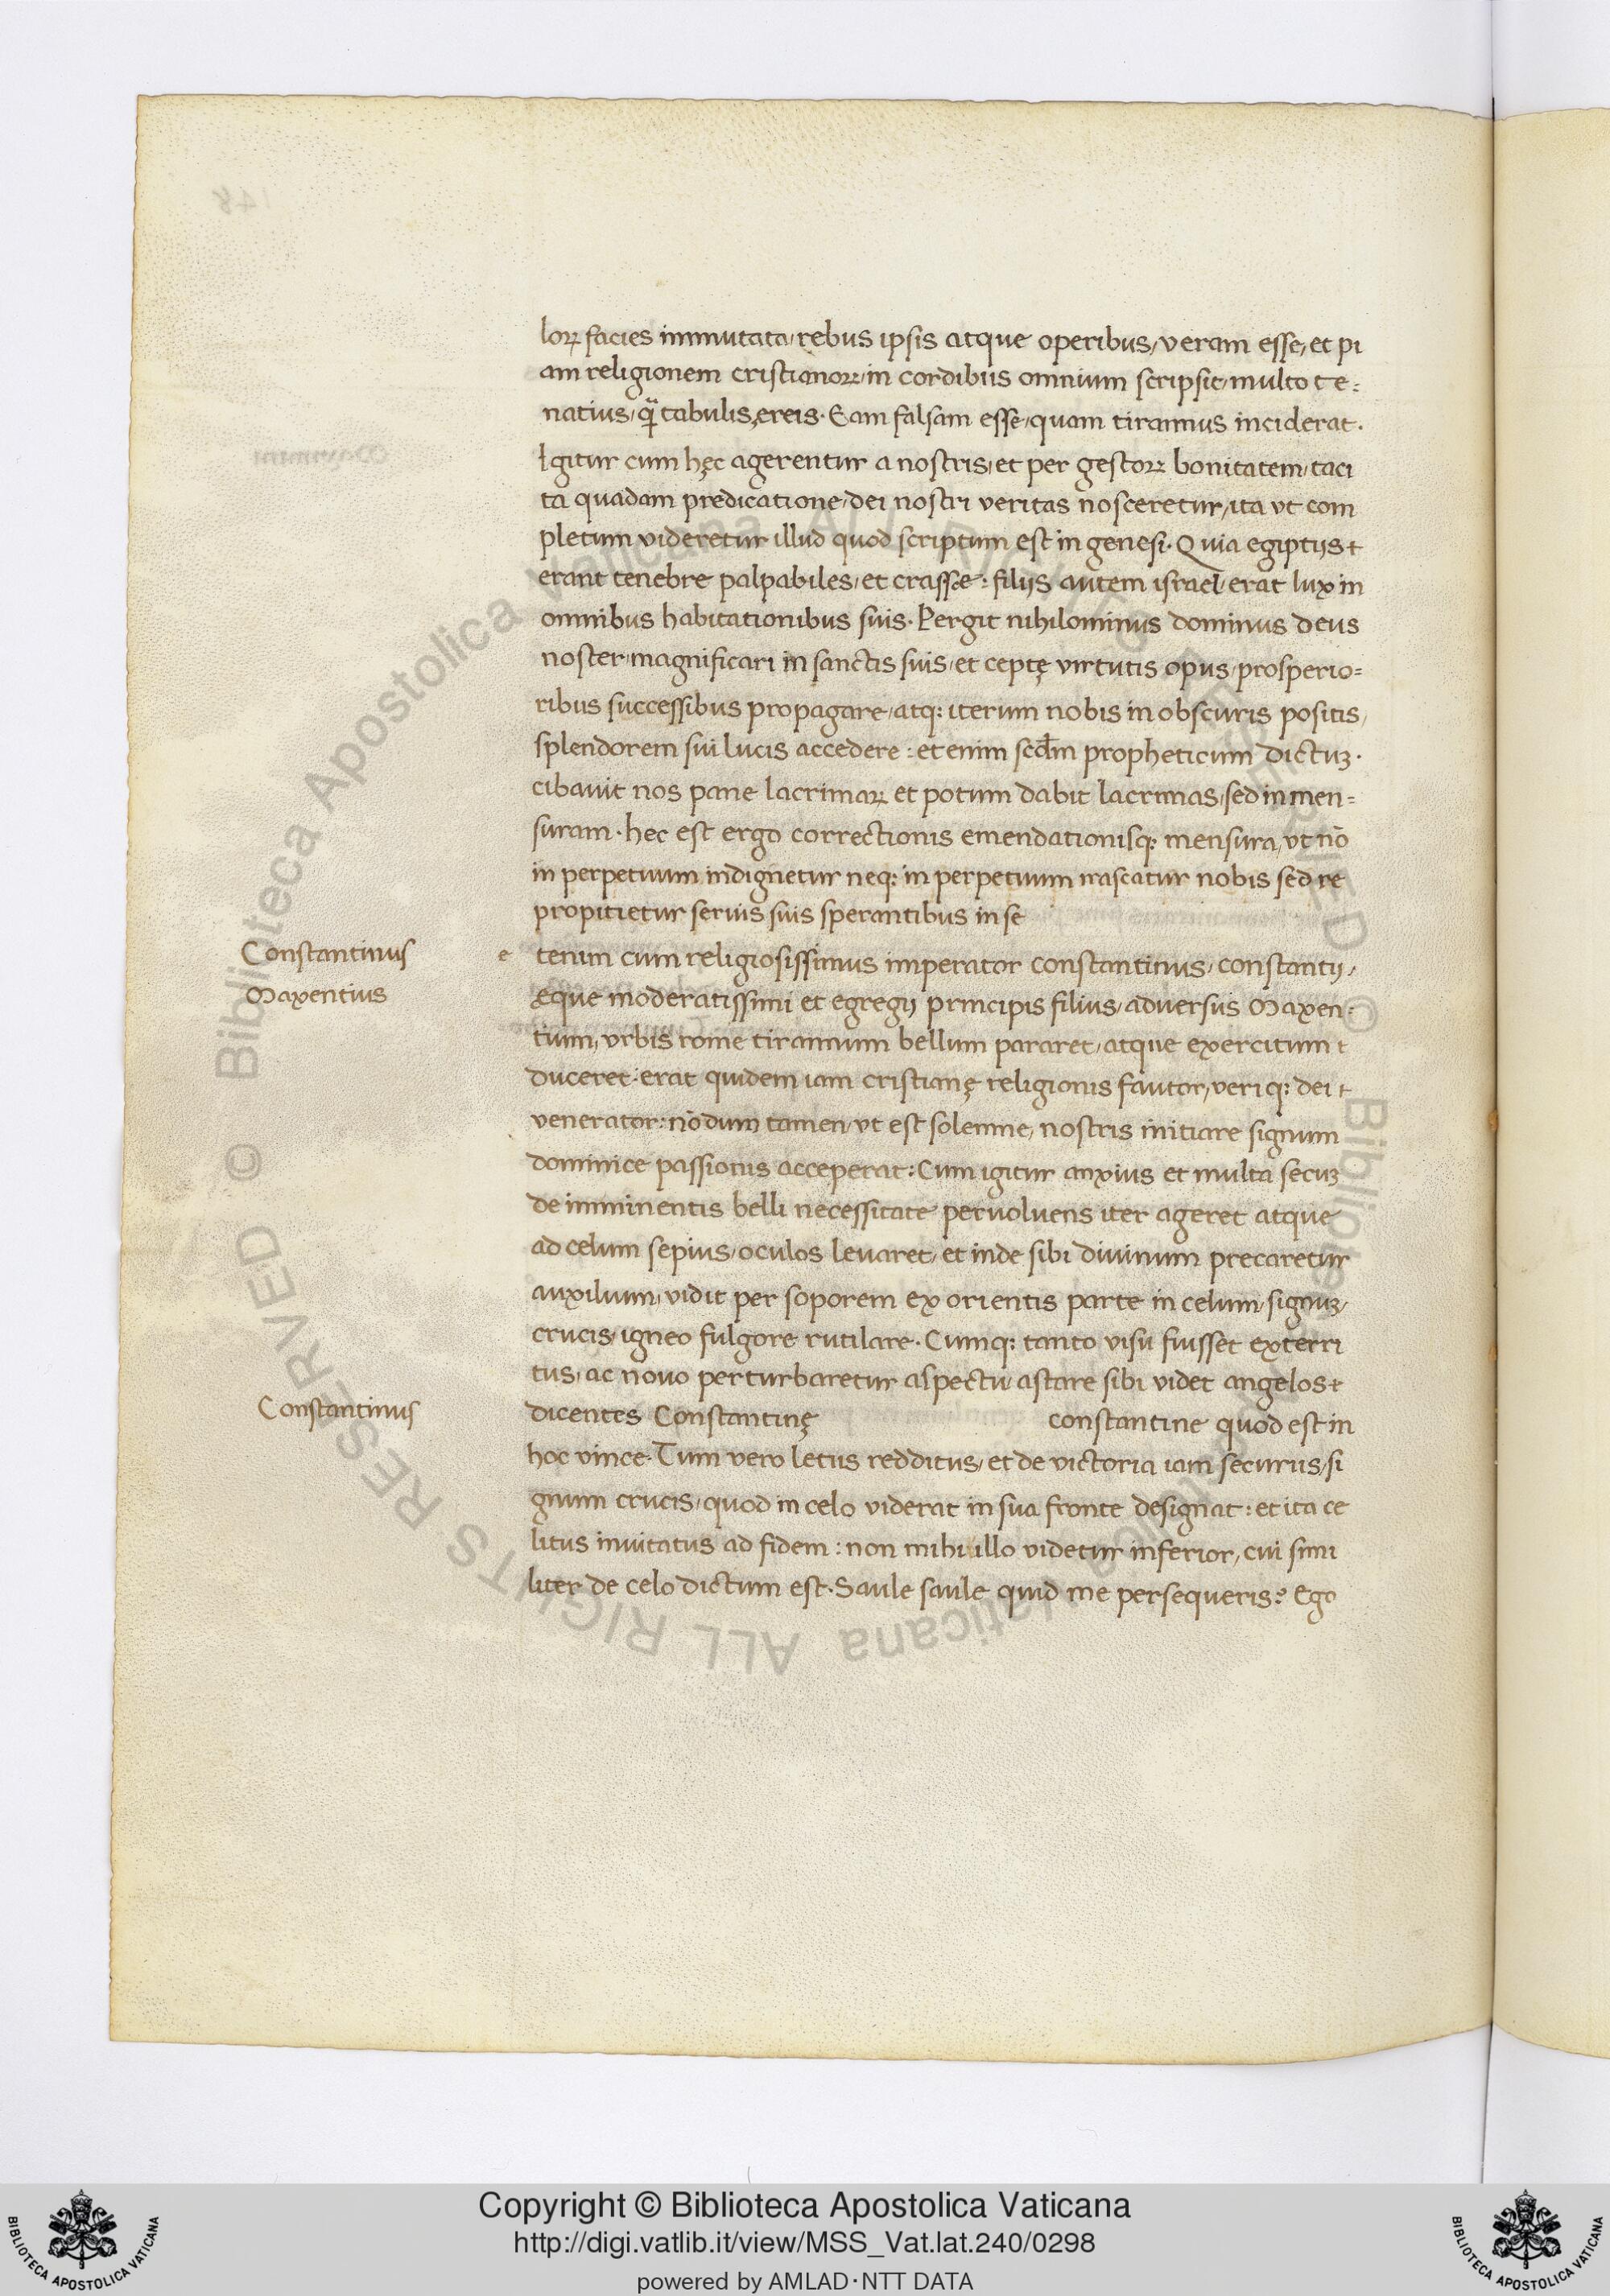 lorꝝ facies immutata, rebus ipsis atque operibus, veram esse, et pi
am religionem cristianorꝝ, in cordibus omnium scripsit, multo te=
natius, q̃ tabulis ęreis. Eam falsam esse, quam tirannus inciderat.
Igitur cum hęc agerentur a nostris, et per gestorꝝ bonitatem, taci
ta quadam predicatione, dei nostri veritas nosceretur, ita ut com
pletum videretur illud quod scriptum est in genesi. Quia egiptijs
erant tenebre palpabiles, et crassæ: filijs autem israel, erat lux in
omnibus habitationibus suis. Pergit nihilominus dominus deus
noster, magnificari in sanctis suis, et ceptę virtutis opus, prosperio=
ribus successibus propagare, atq: iterum nobis in obscuris positis,
splendorem sui lucis accedere: et enim scđm propheticum dictuꝫ.
cibavit nos pane lacrimarꝝ et potum dabit lacrimas, sed in men=
suram. hec est ergo correctionis emendationisq: mensura, ut nō
in perpetuum indignetur neq: in perpetuum irascatur nobis sed re
propitietur servis suis sperantibus in se
Constantinus
Maxentius
e tenim cum religiosissimus imperator constantinus, constantij,
ęque moderatissimi et egregij principis filius, adversus Maxen=
tium, urbis rome tirannum bellum pararet, atque exercitum
duceret. erat quidem iam cristianę religionis fautor, veriq: dei
venerator: nōdum tamen, ut est solemne, nostris initiare signum
dominice passionis acceperat: Cum igitur anxius et multa secuꝫ
de imminentis belli necessitate pervolvens iter ageret atque
ad celum sepius, oculos levaret, et inde sibi divinum precaretur
auxilium, vidit per soporem ex orientis parte in celum, signuꝫ,
crucis, igneo fulgore rutilare. Cumq: tanto visu fuisset exterri
tus, ac novo perturbaretur aspectu, astare sibi videt angelos
Constantinus
dicentes Constantinę constantine quod est in
hoc vince. Tum vero letus redditus, et de victoria iam securus, si
gnum crucis, quod in celo viderat in sua fronte designat: et ita ce
litus invitatus ad fidem: non mihi illo videtur inferior, cui simi
liter de celo dictum est. Saule saule quid me persequeris? Ego
Copyright © Biblioteca Apostolica Vaticana
http://digi.vatlib.it/view/MSS_Vat.lat.240/0298
powered by AMLAD·NTT DATA
BIBLIOTECA APOSTOLICA VATICANA
BIBLIOTECA APOSTOLICA VATICANA
© Biblioteca Apostolica Vaticana ALL RIGHTS RESERVED © Biblioteca Apostolica Vaticana ALL RIGHTS RESERVED